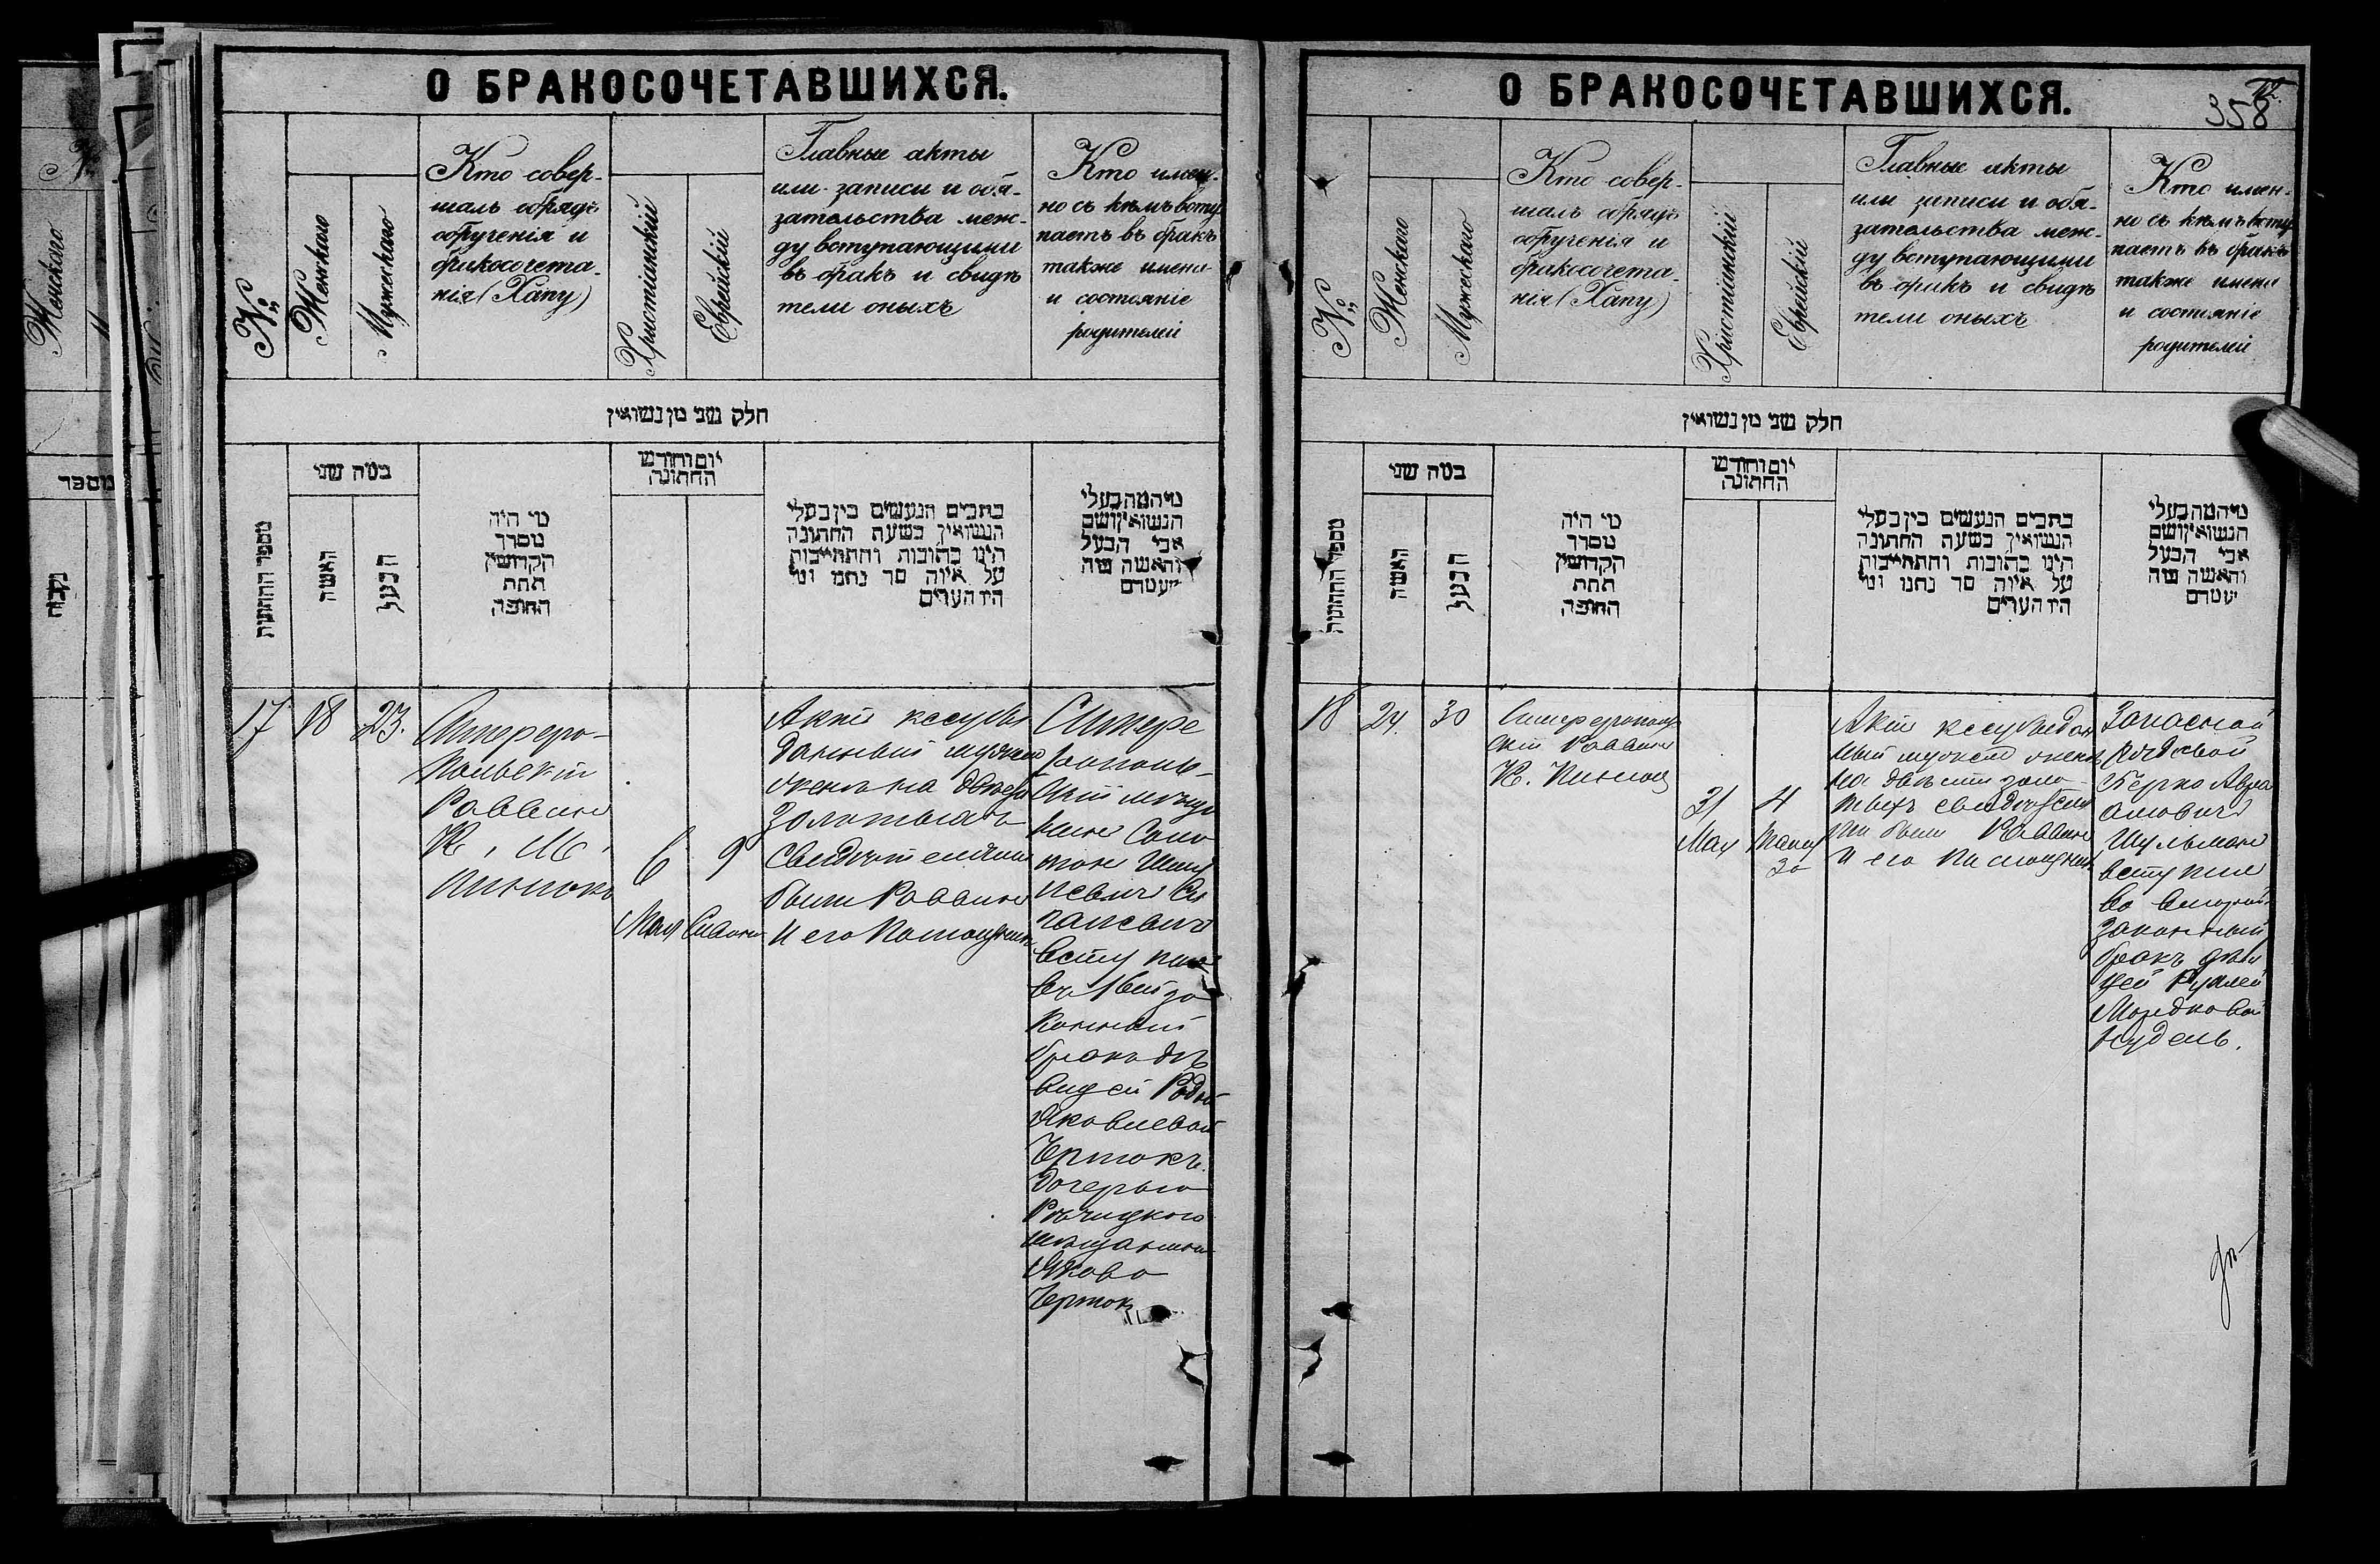 О БРАКОСОЧЕТАВШИХСЯ.
№
Женскаго
Мужескаго
Кто совер-
шалъ обрядъ
обрученія и
бракосочета-
нія (Хапу)
Христіанскій
Еврейскій
Главные акты
или записи и обя-
зательства меж-
ду вступающими
въ бракъ и свидѣ
тели оныхъ
Кто имен-
но съ кѣмъ всту
паетъ въ бракъ
также имена
и состояніе
родителей
חלק שני מן נשואין
מספר החתונות
כמה שני
האשה
הבעל
מי היה
מסדר
הקדושין
תחת
החופה
יום וחודש
החתונה
כתבים הנעשים בין בעלי
הנשואין בשעת החתונה
היינו כתובות והתחייבות
על איזה סך נתנו ומי
היו העדים
מי המה בעלי
הנשואין ושם
אבי הבעל
והאשה ומה
מעמדם
17
18
23.
Симферо-
польскій
Раввинъ
К. М.
6
Мая
9
Сивана
Актъ кесубы
данный мужемъ
женѣ на двѣсти
золотыхъ
Свидѣтелями
были Раввинъ
и его Помощникъ
Симфе
ропольс-
кій мѣща
нинъ Соло
монъ
вступилъ
въ 1вый за
конный
бракъ дѣ
вицей
Яковлевой
Черток.
дочерью
Рѣчицкого
мѣщанина
Якова
Черток
О БРАКОСОЧЕТАВШИХСЯ.
358
№
Женскаго
Мужескаго
Кто совер-
шалъ обрядъ
обрученія и
бракосочета-
нія (Хапу)
Христіанскій
Еврейскій
Главные акты
или записи и обя-
зательства меж-
ду вступающими
въ бракъ и свидѣ
тели оныхъ
Кто имен-
но съ кѣмъ всту
паетъ въ бракъ
также имена
и состояніе
родителей
חלק שני מן נשואין
מספר החתונות
כמה שני
האשה
הבעל
מי היה
מסדר
הקדושין
תחת
החופה
יום וחודש
החתונה
כתבים הנעשים בין בעלי
הנשואין בשעת החתונה
היינו כתובות והתחייבות
על איזה סך נתנו ומי
היו העדים
מי המה בעלי
הנשואין ושם
אבי הבעל
והאשה ומה
מעמדם
18
24.
30
Симферополь
скій Раввинъ
К.
31
Мая
4
Актъ кесубы дан
ный мужемъ женѣ
на двѣсти золо
тыхъ свидѣтеля
ми были Раввинъ
и его помощникъ
Запасной
рядовой
Берко Авра
амовичъ
Шульманъ
вступилъ
во вторый
законный
бракъ дѣви
цей
Мордковой
Нудель.